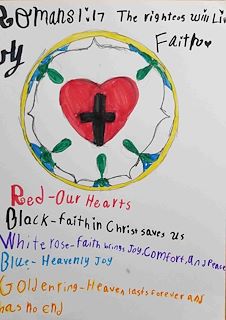 Romans 1:17 The righteos Will Li
by Faith
Red-Our Hearts
Black-faith in Christ saves us
White rose-faith brings Joy, Comfort, and Peace
Blue-Heavenly Joy
Golden ring-Heaven lasts forever and
has no end